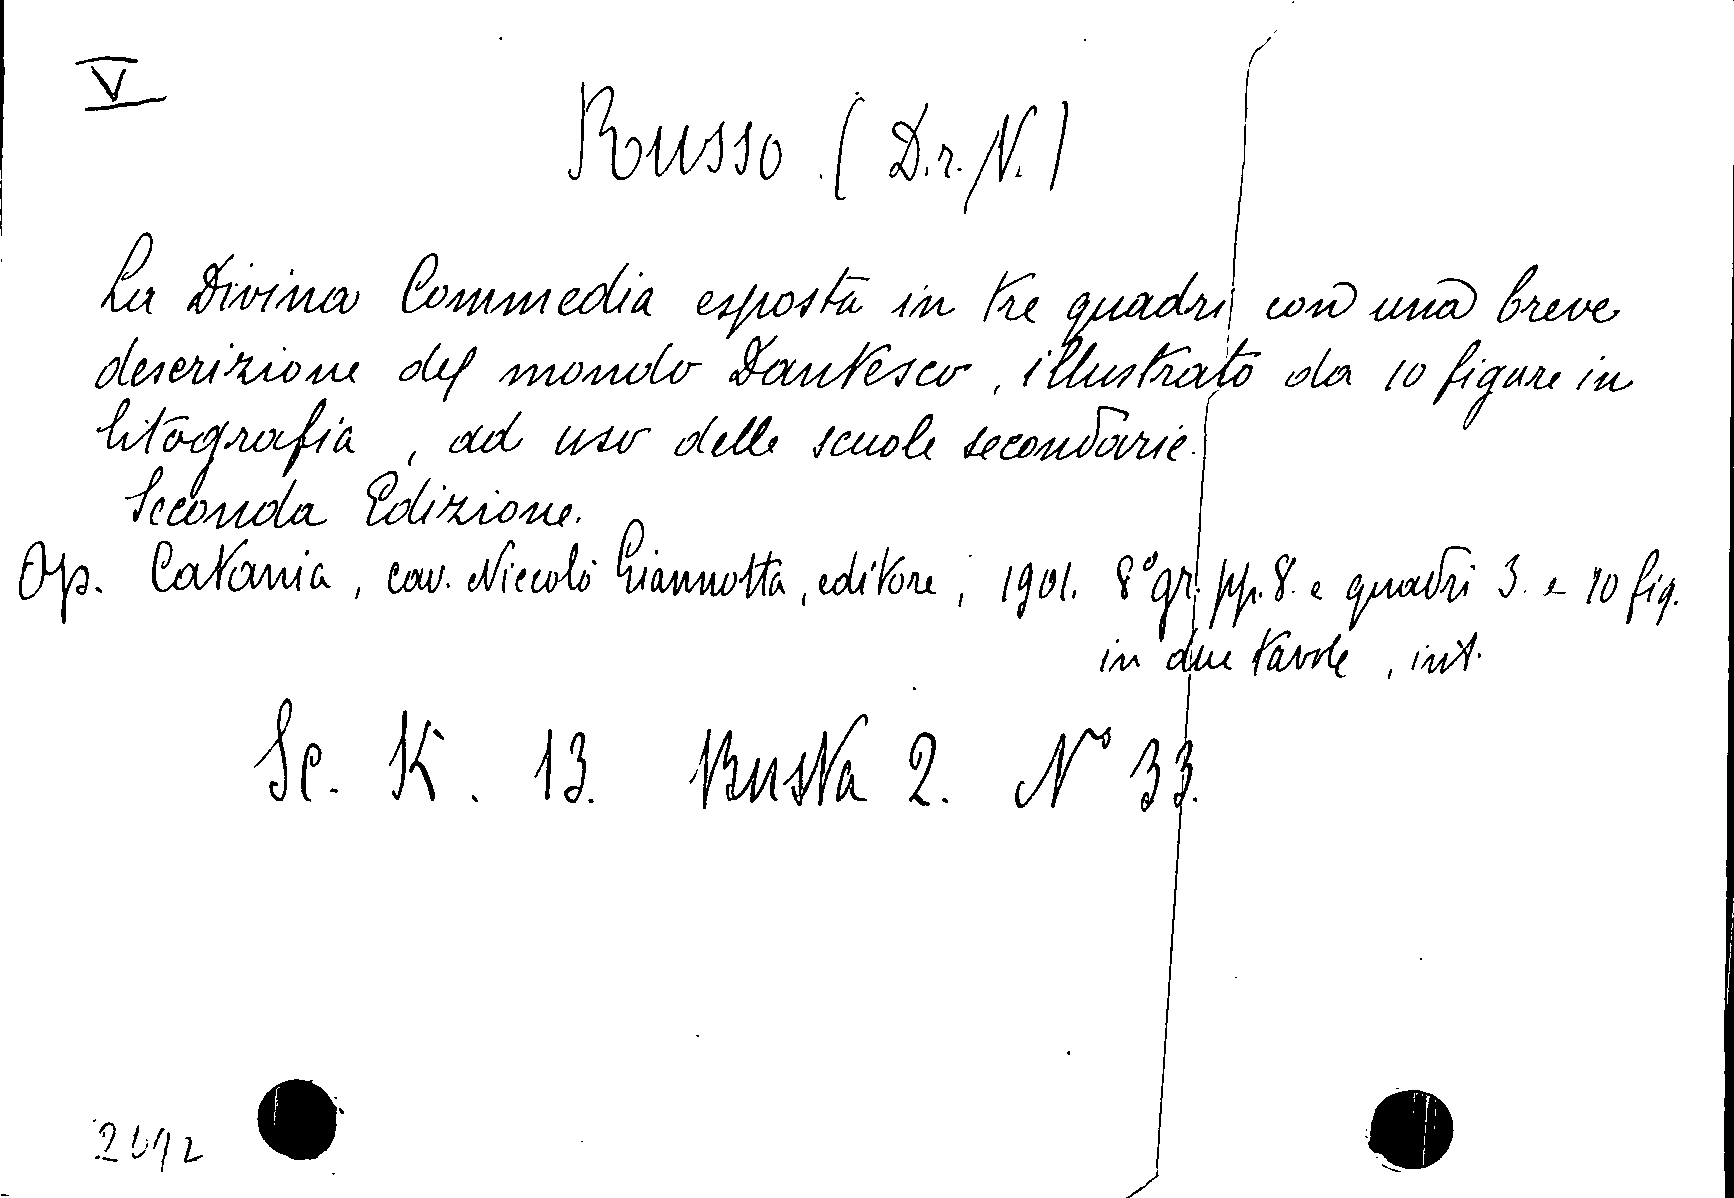 V
Russo (D.r. N.)
La Divina Commedia esposta in tre quadri con una breve
descrizione del mondo Dantesco, illustrato da 10 figure in
litografia, ad uso delle scuole secondarie.
Seconda Edizione.
Op. Catania, cav. Niccolò Giannotta, editore, 1901. 8° gr. pp. 8. e quadri 3. e 10 fig.
in due tavole, int.
Sc. K. 13. Busta 2. N° 33.